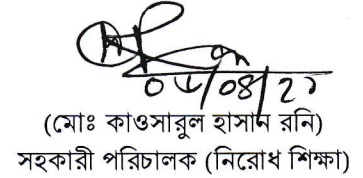 ০৮/০৪/২১
(মোঃ কাওসারুল হাসান রনি)
সহকারী পরিচালক (নিরোধ শিক্ষা)